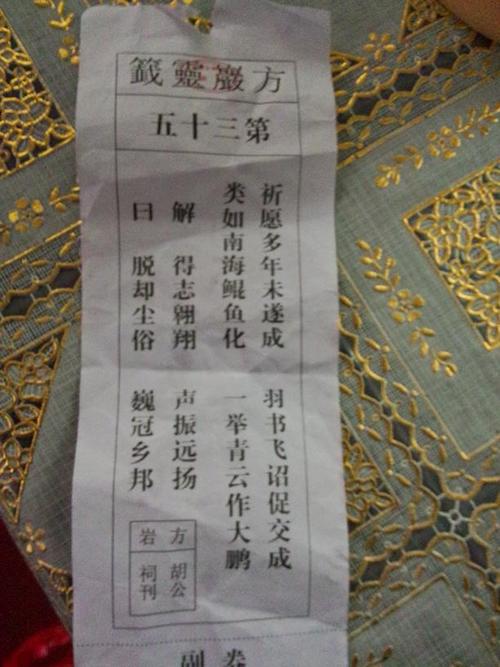 方巖靈籤
第三十五
祈愿多年未遂成 羽书飞诏促交成
类如南海鲲鱼化 一举青云作大鹏
解 得志翱翔 声振远扬
曰 脱却尘俗 巍冠乡邦
方岩
胡公祠刊
副